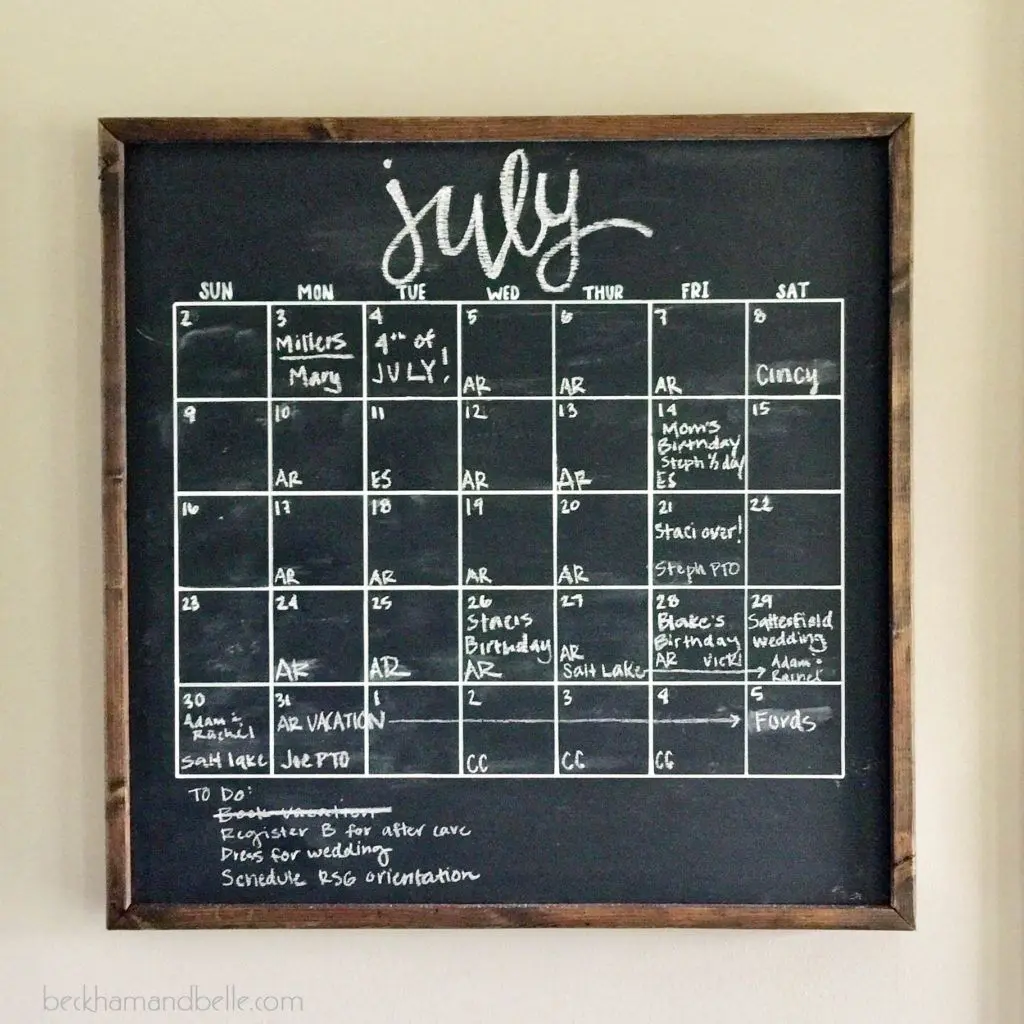 july
SUN MON TUE WED THUR FRI SAT
2
3
Millers
Mary
4
4th of
JULY!
5
AR
6
AR
7
AR
8
Cincy
9
10
AR
11
ES
12
AR
13
AR
14
Mom's
Birthday
Steph ½ day
ES
15
16
17
AR
18
AR
19
AR
20
AR
21
Staci over!
Steph PTO
22
23
24
AR
25
AR
26
Stacis
Birthday
AR
27
AR
Salt Lake
28
Blake's
Birthday
AR Vicki
29
Satterfield
wedding
Adam &
Rachel
30
Adam &
Rachel
Salt lake
31
AR VACATION
Joe PTO
1
2
CC
3
CC
4
CC
5
Fords
TO DO:
Book vacation
Register B for after care
Dress for wedding
Schedule RSG orientation
beckhamandbelle.com